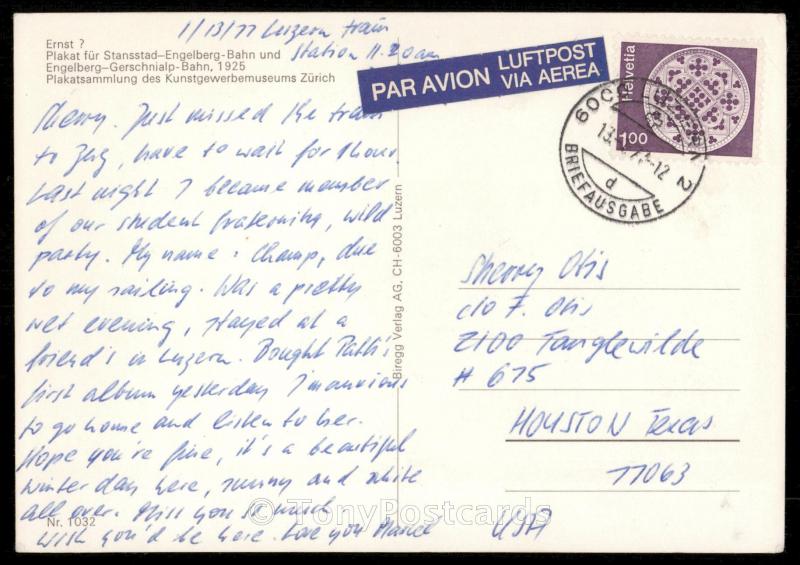 1/13/77 Luzern train
station 11.20 am
Ernst ?
Plakat für Stansstad–Engelberg-Bahn und
Engelberg–Gerschnialp-Bahn, 1925
Plakatsammlung des Kunstgewerbemuseums Zürich
Sherry. Just missed the train
to Zug, have to wait for 1 hour.
Last night I became member
of our student fraternity, wild
party. My name: Champ, due
to my sailing. Was a pretty
wet evening, stayed at a
friend's in Luzern. Bought Patti's
first album yesterday I'm anxious
to go home and listen to her.
Hope you're fine, it's a beautiful
winter day here, sunny and white
all over. Miss you so much
wish you'd be here. Love you
Nr. 1032
Biregg Verlag AG, CH-6003 Luzern
PAR AVION LUFTPOST
VIA AEREA
Helvetia
100
BRIEFAUSGABE
d
2
Sherry Otis
c/o F. Otis
2100 Tanglewilde
# 675
HOUSTON Texas
77063
USA
© TonyPostcards